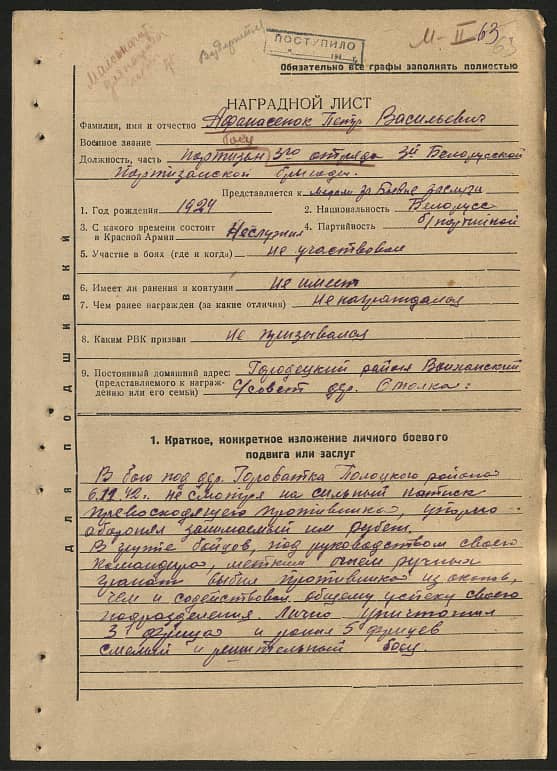 М-II 63
ПОСТУПИЛО
Обязательно все графы заполнять полностью
НАГРАДНОЙ ЛИСТ
Фамилия, имя и отчество Афанасенок Петр Васильевич
Военное звание боец
Должность, часть партизан 3го отряда 3й Белорусской
Партизанской бригады.
Представляется к медали за боевые заслуги
1. Год рождения 1924 2. Национальность Белорусс
3. С какого времени состоит в Красной Армии Неслужил 4. Партийность б/партийной
5. Участие в боях (где и когда) не участвовал
6. Имеет ли ранения и контузии не имеет
7. Чем ранее награжден (за какие отличия) Ненаграждался
8. Каким РВК призван не призывался
9. Постоянный домашний адрес: Городецкий района
(представляемого к награж- с/совет дер.
дению или его семьи)
Для подшивки
1. Краткое, конкретное изложение личного боевого
подвига или заслуг
В бою под дер. Полоцкого района
42г. не смотря на сильный натиск
превосходящего противника, упорно
оборонял занимаемый им рубеж.
В группе бойцов, под руководством своего
командира, метким огнем ручных
гранат выбил противника из окопов,
чем и содействовал общему успеху своего
подразделения. Лично уничтожил
3 фрица и ранил 5 фрицев
смелый и решительный боец.